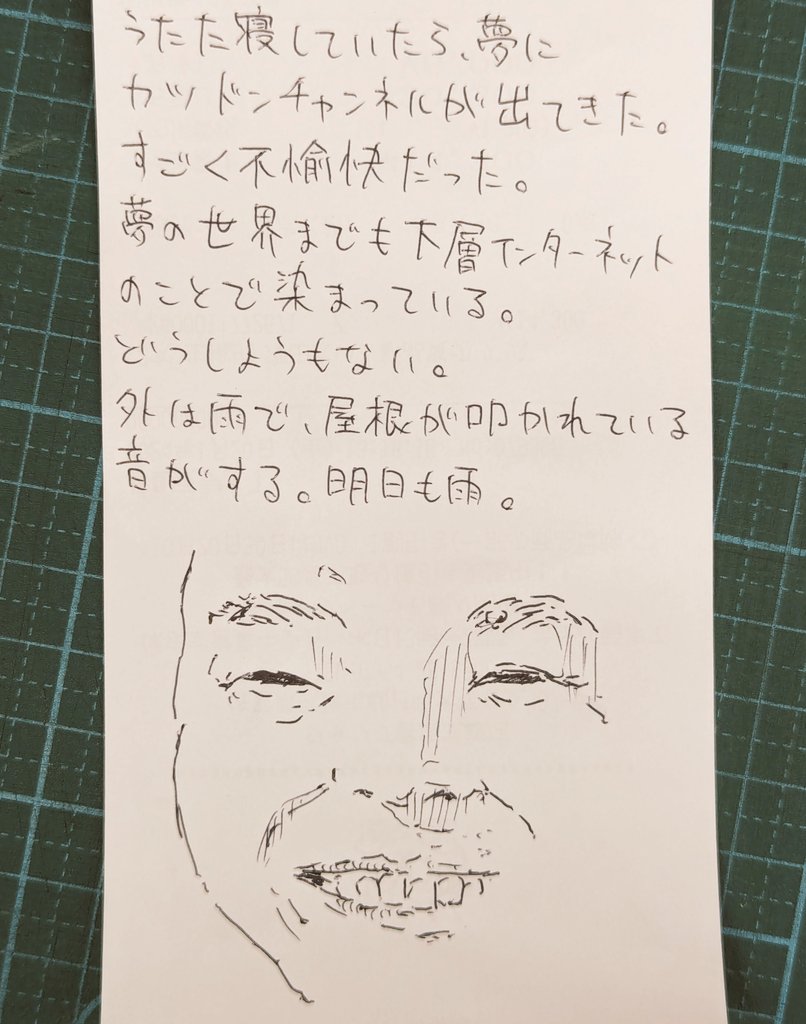 うたた寝していたら、夢に
カツドンチャンネルが出てきた。
すごく不愉快だった。
夢の世界までも下層インターネット
のことで染まっている。
どうしようもない。
外は雨で、屋根が叩かれている
音がする。明日も雨。